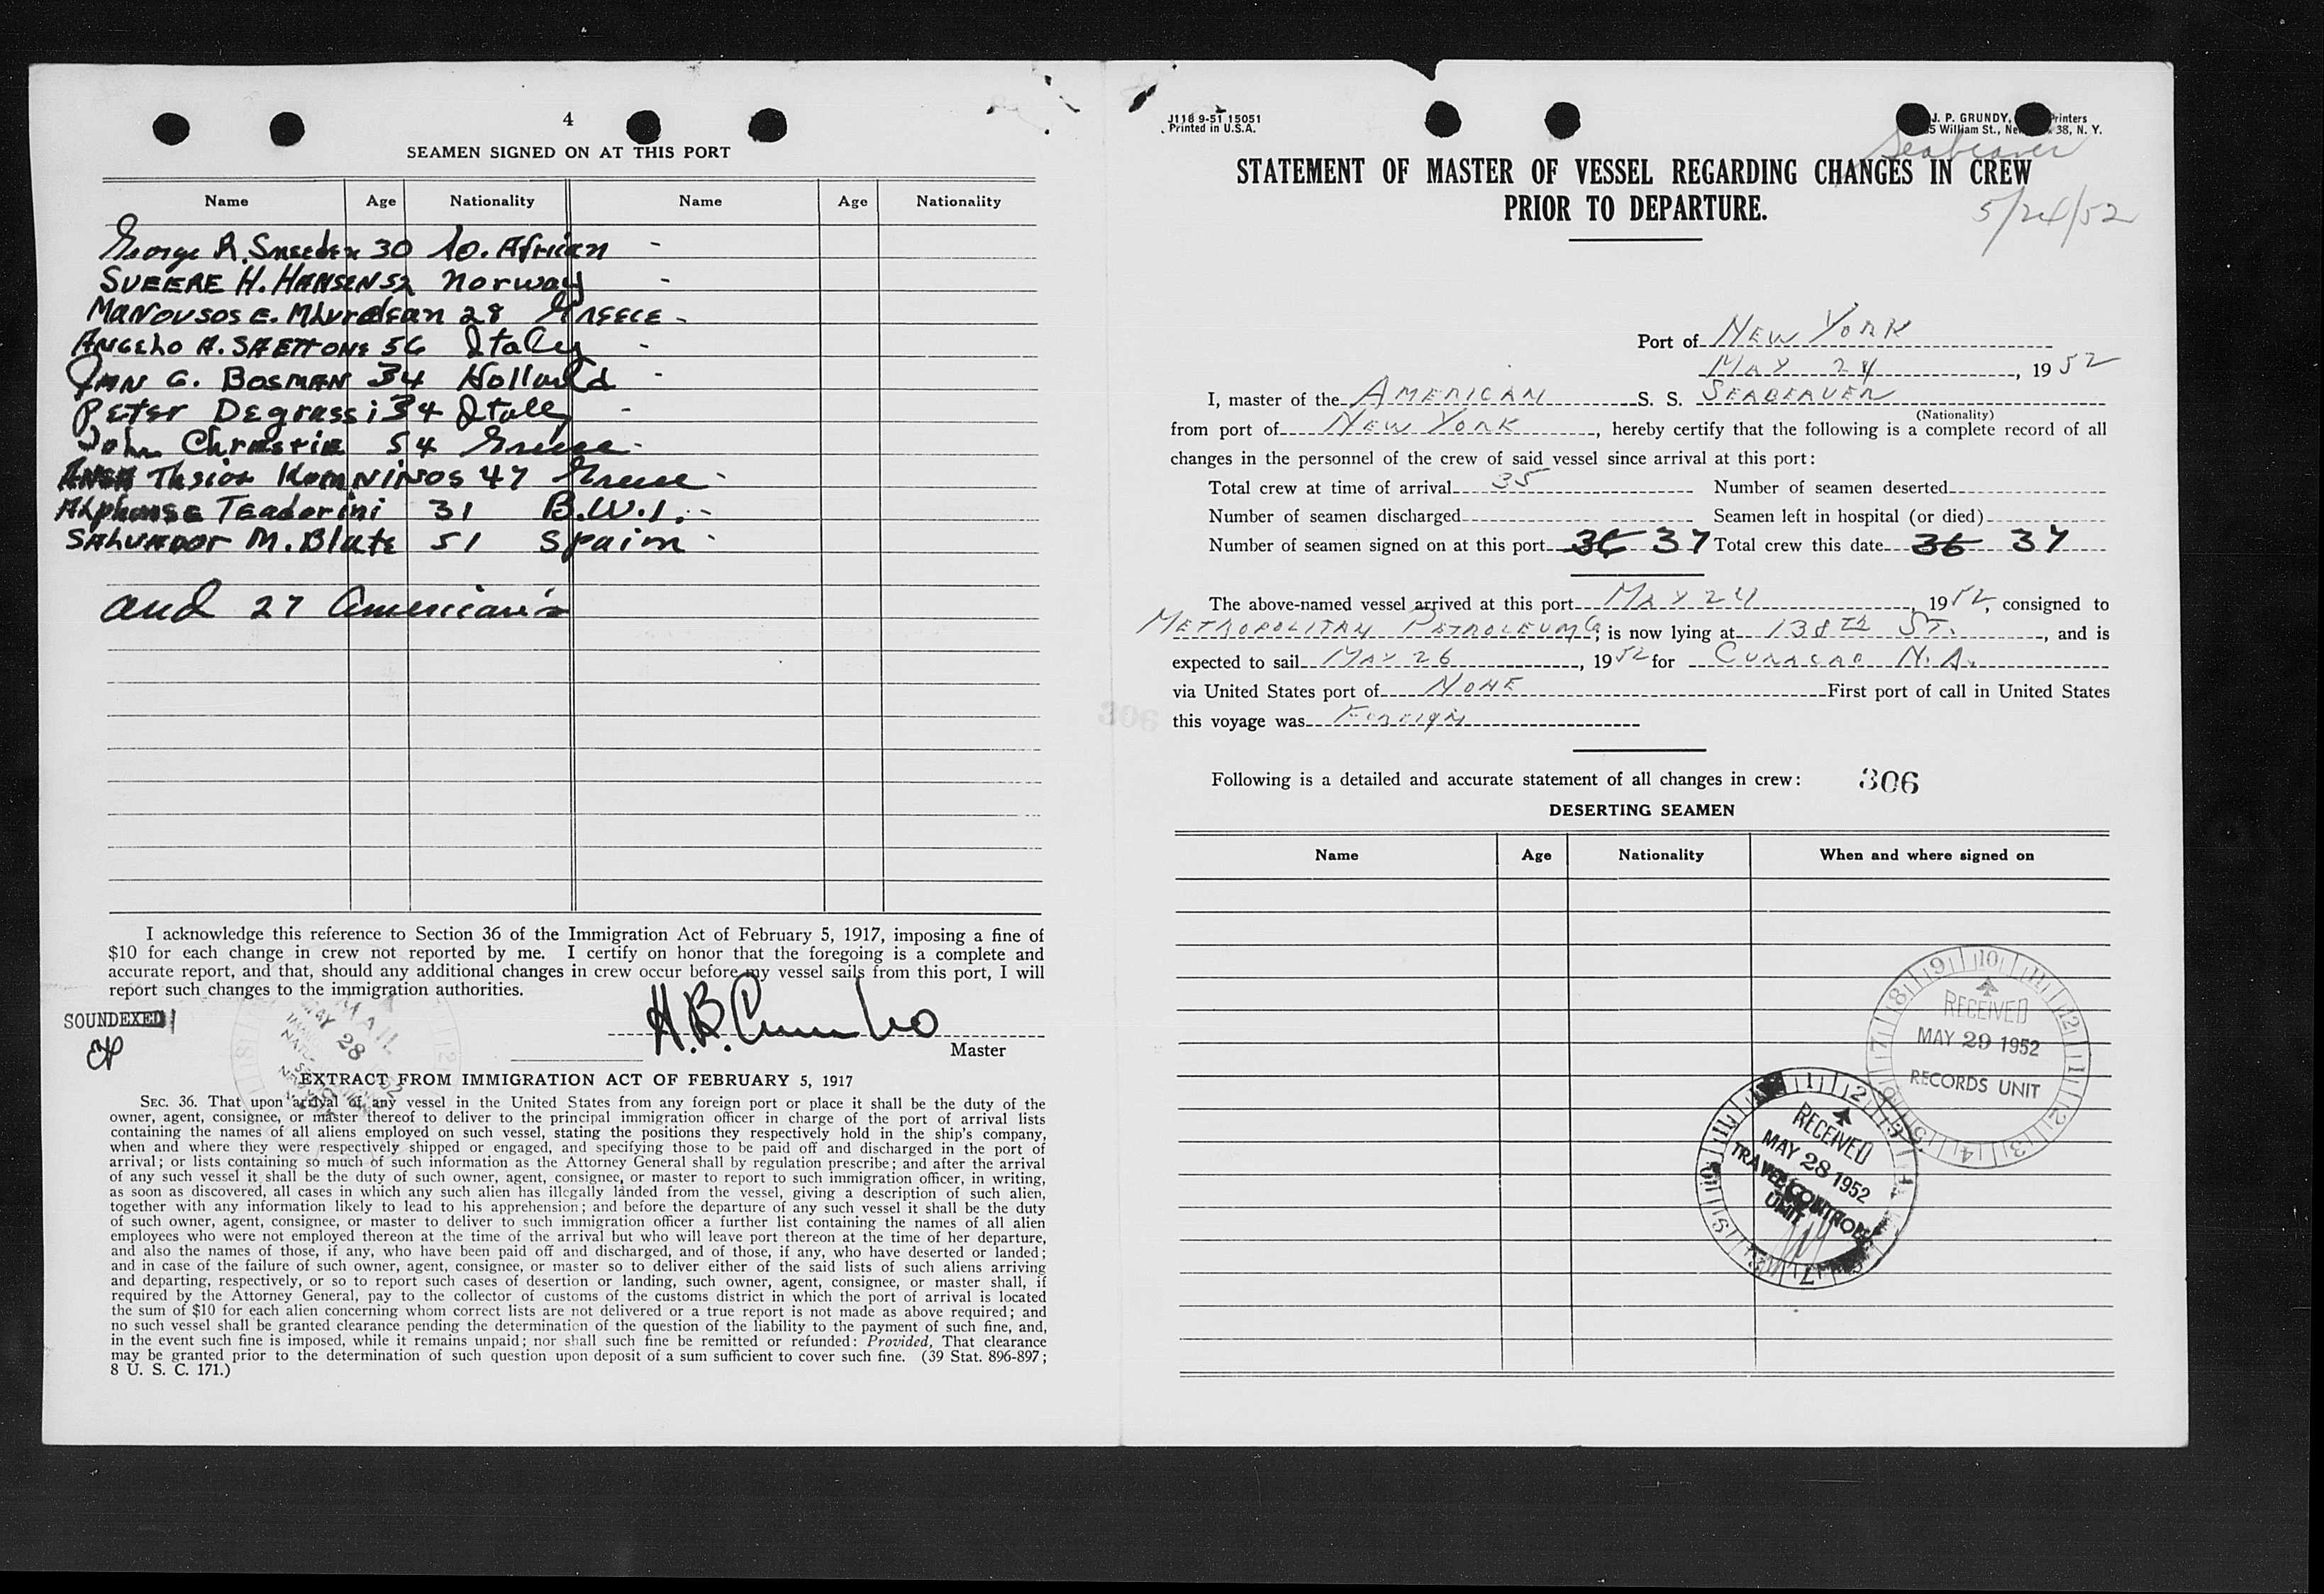 4
SEAMEN SIGNED ON AT THIS PORT
Name Age Nationality Name Age Nationality
George R. Sneeden 30 So. African -
SVEERE H. HANSEN 52 Norway -
MANOUSOS E. 28 GREECE -
ANGELO A. SAETTONE 56 Italy -
JAN G. BOSMAN 34 Holland -
PETER DEgrassi 34 Italy -
John Christie 54 Greece -
KOMNINOS 47 Greece -
Alphonse Teadorini 31 B.W.I. -
SALVADOR M. Blate 51 Spain -
and 27 American's
I acknowledge this reference to Section 36 of the Immigration Act of February 5, 1917, imposing a fine of
$10 for each change in crew not reported by me. I certify on honor that the foregoing is a complete and
accurate report, and that, should any additional changes in crew occur before my vessel sails from this port, I will
report such changes to the immigration authorities.
SOUNDEXED
H.B.
Master
MAIL
MAY 28
EXTRACT FROM IMMIGRATION ACT OF FEBRUARY 5, 1917
SEC. 36. That upon arrival of any vessel in the United States from any foreign port or place it shall be the duty of the
owner, agent, consignee, or master thereof to deliver to the principal immigration officer in charge of the port of arrival lists
containing the names of all aliens employed on such vessel, stating the positions they respectively hold in the ship's company,
when and where they were respectively shipped or engaged, and specifying those to be paid off and discharged in the port of
arrival; or lists containing so much of such information as the Attorney General shall by regulation prescribe; and after the arrival
of any such vessel it shall be the duty of such owner, agent, consignee, or master to report to such immigration officer, in writing,
as soon as discovered, all cases in which any such alien has illegally landed from the vessel, giving a description of such alien,
together with any information likely to lead to his apprehension; and before the departure of any such vessel it shall be the duty
of such owner, agent, consignee, or master to deliver to such immigration officer a further list containing the names of all alien
employees who were not employed thereon at the time of the arrival but who will leave port thereon at the time of her departure,
and also the names of those, if any, who have been paid off and discharged, and of those, if any, who have deserted or landed;
and in case of the failure of such owner, agent, consignee, or master so to deliver either of the said lists of such aliens arriving
and departing, respectively, or so to report such cases of desertion or landing, such owner, agent, consignee, or master shall, if
required by the Attorney General, pay to the collector of customs of the customs district in which the port of arrival is located
the sum of $10 for each alien concerning whom correct lists are not delivered or a true report is not made as above required; and
no such vessel shall be granted clearance pending the determination of the question of the liability to the payment of such fine, and,
in the event such fine is imposed, while it remains unpaid; nor shall such fine be remitted or refunded: Provided, That clearance
may be granted prior to the determination of such question upon deposit of a sum sufficient to cover such fine. (39 Stat. 896-897;
8 U. S. C. 171.)
J118 9-51 15051
Printed in U.S.A.
J. P. GRUNDY, Printers
William St., 38, N. Y.
Seabeaver
STATEMENT OF MASTER OF VESSEL REGARDING CHANGES IN CREW
PRIOR TO DEPARTURE.
5/24/52
Port of NEW YORK
MAY 24, 1952
I, master of the AMERICAN S. S. SEABEAVER
(Nationality)
from port of NEW YORK, hereby certify that the following is a complete record of all
changes in the personnel of the crew of said vessel since arrival at this port:
Total crew at time of arrival 35 Number of seamen deserted
Number of seamen discharged Seamen left in hospital (or died)
Number of seamen signed on at this port 36 37 Total crew this date 36 37
The above-named vessel arrived at this port MAY 24, 1952, consigned to
METROPOLITAN PETROLEUM Co, is now lying at 138TH ST., and is
expected to sail MAY 26, 1952 for CURACAO N.A.
via United States port of NONE First port of call in United States
this voyage was Foreign
306
Following is a detailed and accurate statement of all changes in crew: 306
DESERTING SEAMEN
Name Age Nationality When and where signed on
RECEIVED
MAY 29 1952
RECORDS UNIT
RECEIVED
MAY 28 1952
TRAVEL CONTROL
UNIT